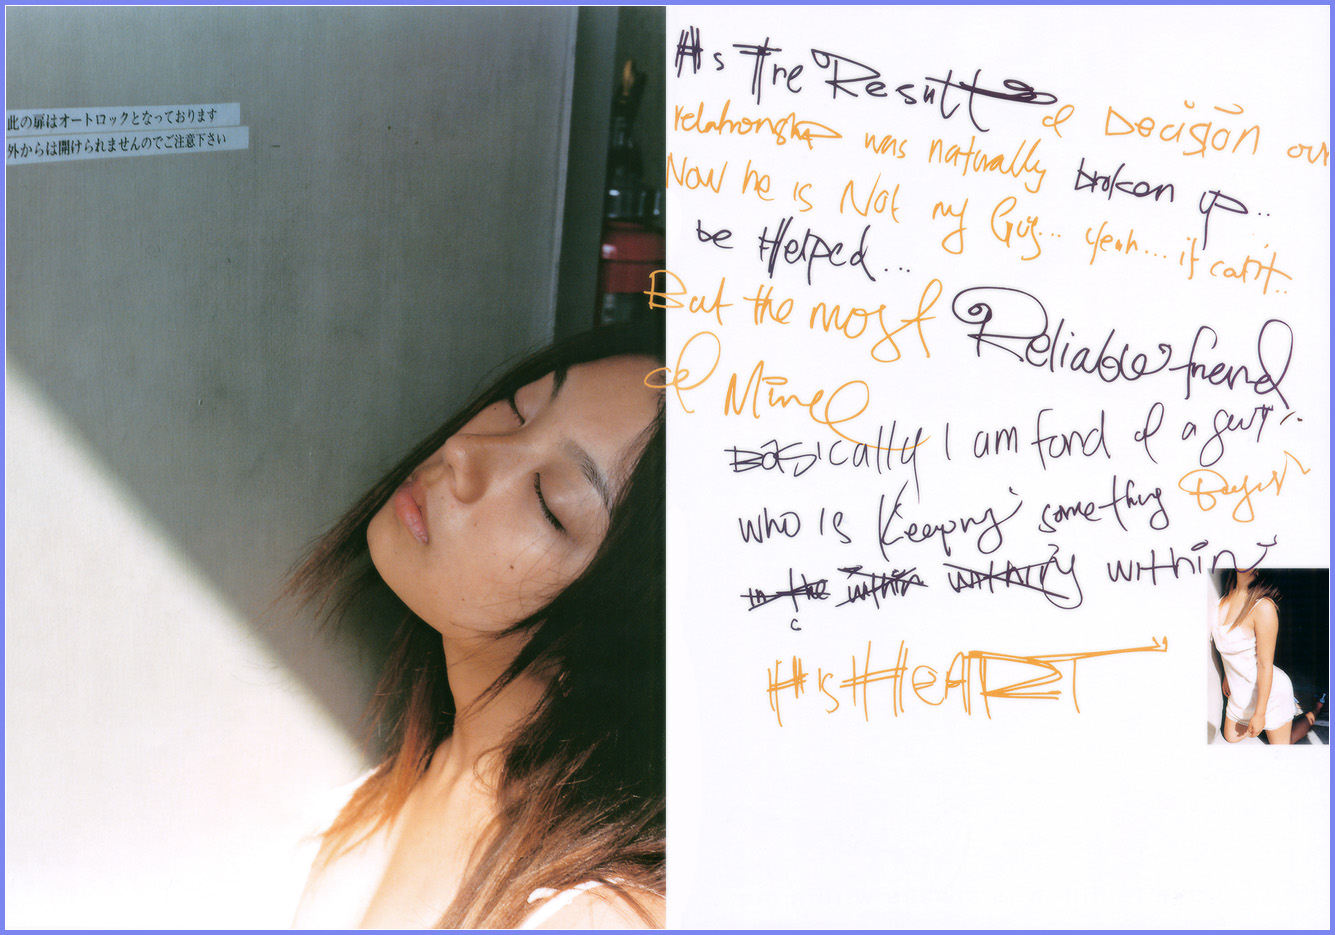 此の扉はオートロックとなっております
外からは開けられませんのでご注意下さい
As The Result of Decision our
relationship was naturally broken up..
Now he is Not my Guy... yeah... it can't..
be Helped...
But the most Reliable friend
of Mine
basically I am fond of a guy..
who is Keeping something
in the within within
His HeART